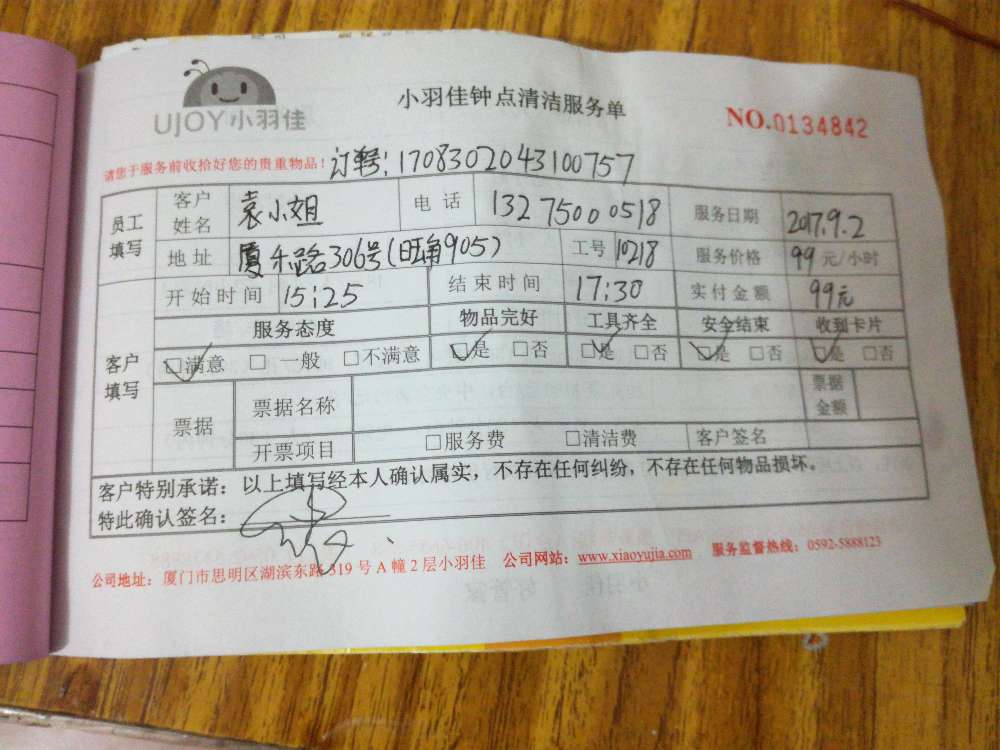 UJOY小羽佳
小羽佳钟点清洁服务单
NO.0134842
请您于服务前收拾好您的贵重物品！订单号:1708302043100757
员工填写 客户姓名 袁小姐 电话 13275000518 服务日期 2017.9.2
地址 厦禾路306号(旺角905) 工号 10218 服务价格 99元/小时
客户填写 开始时间 15:25 结束时间 17:30 实付金额 99元
服务态度 物品完好 工具齐全 安全结束 收到卡片
☑满意 □一般 □不满意 ☑是 □否 ☑是 □否 ☑是 □否 ☑是 □否
票据 票据名称 票据金额
开票项目 □服务费 □清洁费 客户签名
客户特别承诺：以上填写经本人确认属实，不存在任何纠纷，不存在任何物品损坏。
特此确认签名：
公司地址：厦门市思明区湖滨东路319号A幢2层小羽佳 公司网站：www.xiaoyujia.com 服务监督热线：0592-5888123